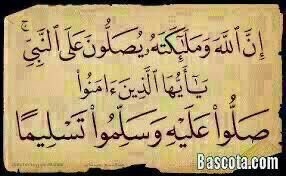 إِنَّ ٱللَّهَ وَمَلَٰٓئِكَتَهُۥ يُصَلُّونَ عَلَى ٱلنَّبِيِّ ۚ
يَٰٓأَيُّهَا ٱلَّذِينَ ءَامَنُوا۟
صَلُّوا۟ عَلَيْهِ وَسَلِّمُوا۟ تَسْلِيمًا
Bascota.com